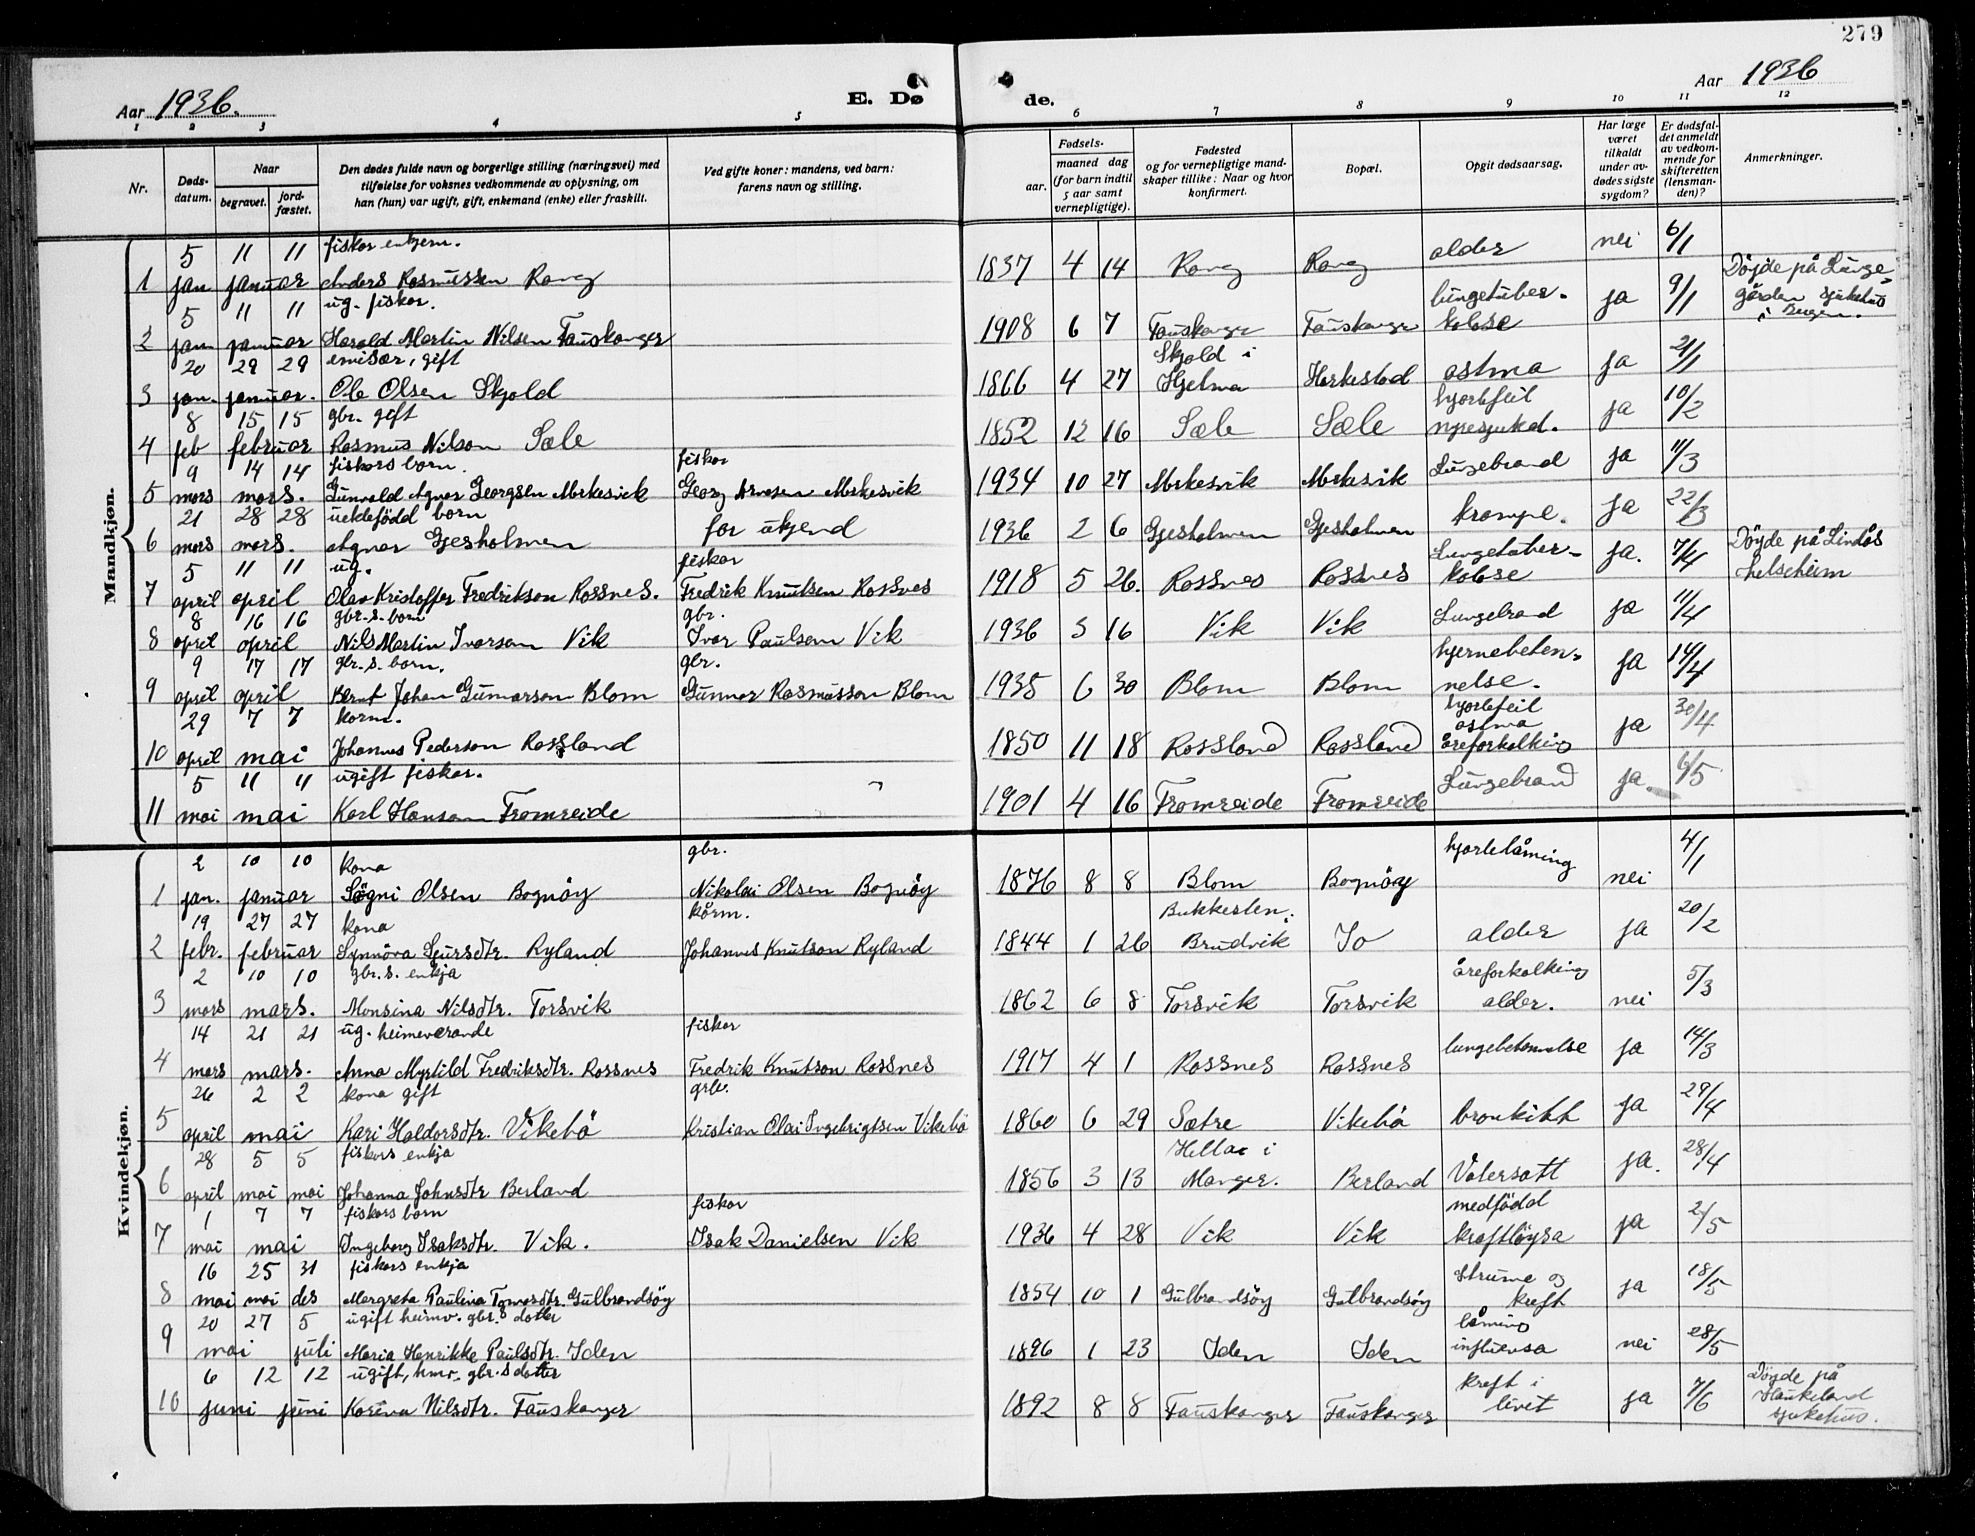 279
Aar 1936.
E. Dø de.
Aar 1936
1 2 3 4 5 6 7 8 9 10 11 12
Nr.
Dødsdatum.
Naar
begravet.
jordfæstet.
Den dødes fulde navn og borgerlige stilling (næringsvei) med
tilføielse for voksnes vedkommende av oplysning, om
han (hun) var ugift, gift, enkemand (enke) eller fraskilt.
Ved gifte koner: mandens, ved barn:
farens navn og stilling.
Fødsels-
aar.
maaned dag
(for barn indtil
5 aar samt
vernepligtige).
Fødested
og for vernepligtige mand-
skaper tillike: Naar og hvor
konfirmert.
Bopæl.
Opgit dødsaarsag.
Har læge
været
tilkaldt
under av-
dødes sidste
sygdom?
Er dødsfal-
det anmeldt
av vedkom-
mende for
skifteretten
(lensman-
den)?
Anmerkninger.
Mandkjøn.
5 11 11 fiskar enkjem.
1 jan januar Anders Rasmussen Rong 1837 4 14 Rong Rong alder nei 6/1
5 11 11 ug. fiskar.
2 jan januar Harald Martin Nilsen Fauskanger 1908 6 7 Fauskanger Fauskanger lungetuber-kolose ja 9/1 Döyde på Lunge-gården sjukehus i Bergen.
20 29 29 emisær, gift
3 jan. januar. Ole Olsen Skjold 1866 4 27 Skjold i Hjelma Herkestad astma ja 21/1
8 15 15 gbr. gift
4 feb februar Rasmus Nilson Sæle 1852 12 16 Sæle Sæle hjortefeil nyresjukd. ja 10/2
9 14 14 fiskars born. fiskar
5 mars mars. Gunvald Agnar Georgsen Morkesvik Georg Arnesen Morkesvik 1934 10 27 Morkesvik Morkesvik Lungebrand ja 11/3
21 28 28 uektefödd born
6 mars mars. Agnar Gjesholmen far ukjend 1936 2 6 Gjesholmen Gjesholmen krampe. ja 22/3
5 11 11 ug. fiskar
7 april april Olav Kristoffer Fredrikson Rossnes. Fredrik Knutsen Rossnes 1918 5 26. Rossnes Rossnes Lungetuber-kolose ja. 7/4 Döyde på Lindås helseheim
8 16 16 gbr.s. born gbr.
8 april april Nils Martin Ivarson Vik Ivar Paulsen Vik 1936 3 16 Vik Vik Lungebrand ja 11/4
9 17 17 gbr.s. born. gbr.
9 april april Bernt Johan Gunnarson Blom Gunnar Rasmusson Blom 1935 6 30 Blom Blom hjernebeten-nelse. ja 14/4
29 7 7 korm.
10 april mai Johannes Pederson Rossland 1850 11 18 Rossland Rossland hjortefeil astma åreforkalking ja 30/4
5 11 11 ugift fiskar.
11 mai mai Karl Hanson Fromreide 1901 4 16 Fromreide Fromreide Lungebrand ja 6/5
Kvindekjøn.
2 10 10 kona gbr.
1 jan. januar Sögni Olsen Bognöy Nikolai Olsen Bognöy 1876 8 8 Blom Bognöy hjortelåming nei 4/1
19 27 27 kona kårm.
2 febr. februar Synnöva Sjursdtr. Ryland Johannes Knutson Ryland 1844 1 26 Bukkesten, Brudvik Io alder ja 20/2
2 10 10 gbr.s. enkja
3 mars mars. Monsina Nilsdtr. Torsvik 1862 6 8 Torsvik Torsvik åreforkalking alder. nei 5/3
14 21 21 ug. heimeverande fiskar
4 mars mars. Anna Myrtild Fredriksdtr. Rossnes Fredrik Knutson Rossnes 1917 4 1 Rossnes Rossnes lungebetennelse ja 14/3
26 2 2 kona gift
5 april mai Kari Haldorsdtr. Vikebö Kristian Olai Ingebrigtsen Vikebö 1860 6 29 Sætre Vikebö bronkitt ja 29/4
28 5 5 fiskars enkja
6 april mai mai Johanna Johnsdtr Berland 1856 3 13 Hellar i Manger. Berland Vatersott ja. 28/4
1 7 7 fiskars born fiskar
7 mai mai Ingeborg Isaksdtr. Vik. Isak Danielsen Vik 1936 4 28 Vik Vik medfödd kraftlöysa ja 2/5
16 25 31 fiskars enkja
8 mai mai des Margreta Paulina Tomasdtr. Gulbrandsöy 1854 10 1 Gulbrandsöy Gulbrandsöy Strume og kreft ja 18/5
20 27 5 ugift heimv. gbr.s dotter
9 mai juli Maria Henrikke Paulsdtr. Iden 1896 1 23 Iden Iden låming influensa nei 28/5
6 12 12 ugift, hmv. gbr.s dotter
10 juni juni Korina Nilsdtr. Fauskanger 1892 8 8 Fauskanger Fauskanger kreft i livet ja 7/6 Döyde på Haukeland sjukehus.